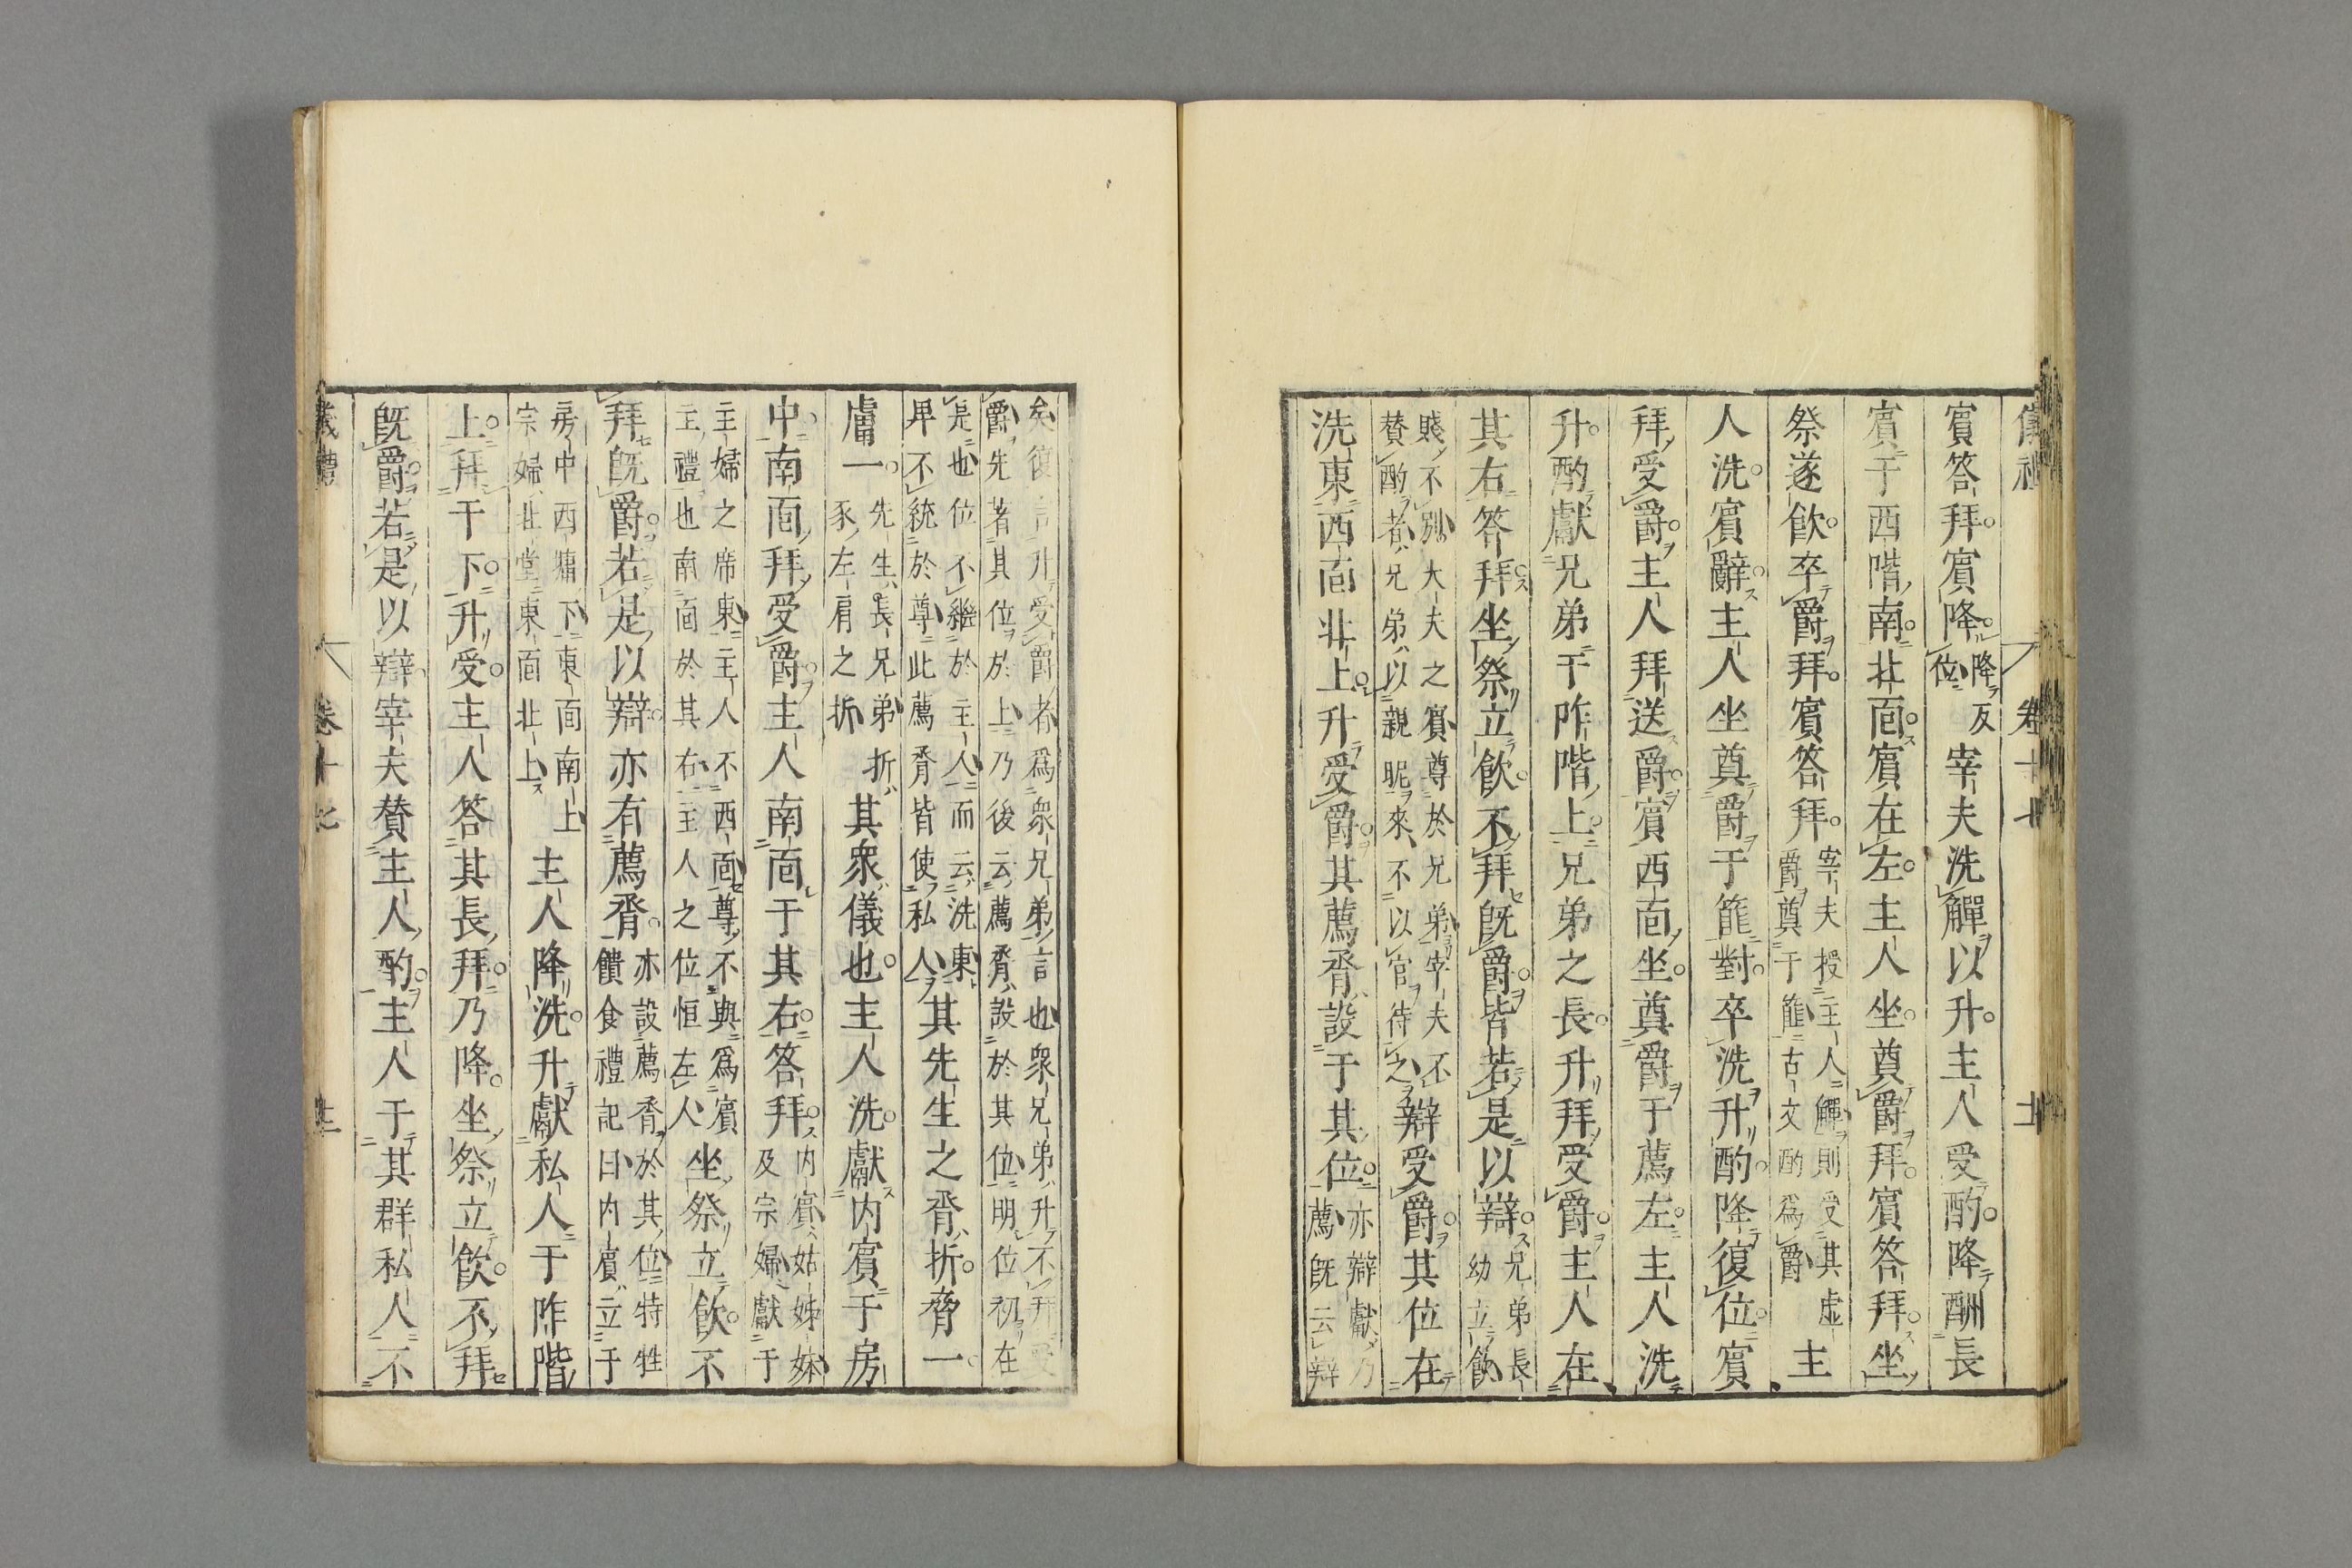 賓答拜賓降降反位宰夫洗觶以升主人受酌降酬長
賓于西階南北面賓在左主人坐奠爵拜賓答拜坐
祭遂飲卒爵拜賓答拜宰夫授主人觶則受其虛爵奠于篚古文酌爲爵主
人洗賓辭主人坐奠爵于篚對卒洗升酌降復位賓
拜受爵主人拜送爵賓西面坐奠爵于薦左主人洗
升酌獻兄弟于阼階上兄弟之長升拜受爵主人在
其右答拜坐祭立飲不拜既爵皆若是以辯兄弟長幼立飲
賤不別大夫之賓尊於兄弟宰夫不賛酌者兄弟以親昵來不以官待之辯受爵其位在
洗東西面北上升受爵其薦脀設于其位亦辯獻乃薦既云辯
矣復言升受爵者爲衆兄弟言也衆兄弟升不拜受爵先著其位於上乃後云薦脀設於其位明位初在
是也位不繼於主人而云洗東卑不統於尊此薦脀皆使私人其先生之脀折脅一
膚一先生長兄弟折豕左肩之折其衆儀也主人洗獻内賓于房
中南面拜受爵主人南面于其右答拜内賓姑姊妹及宗婦獻于
主婦之席東主人不西面尊不與爲賓主禮也南面於其右主人之位恒左人坐祭立飲不
拜既爵若是以辯亦有薦脀亦設薦脀於其位特牲饋食禮記曰内賓立于
房中西墉下東面南上宗婦北堂東面北上主人降洗升獻私人于阼階
上拜于下升受主人答其長拜乃降坐祭立飲不拜
既爵若是以辯宰夫賛主人酌主人于其群私人不
卷十七